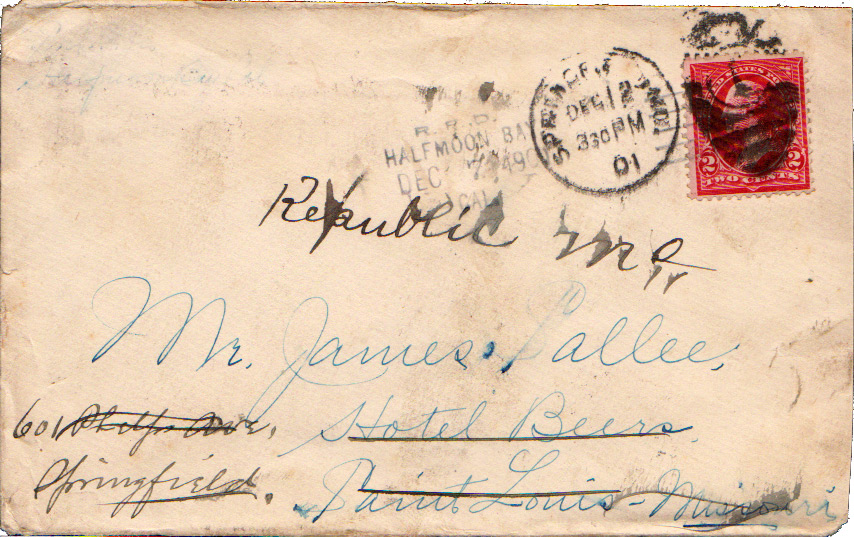 R.P.O.
HALFMOON BAY
DEC 7 1490
CAL
SPRINGFIELD, MO.
DEC 12
330 PM
01
UNITED STATES POSTAGE
2 2
TWO CENTS
Republic Mo
Mr. James Pallee,
601 Phelps Ave,
Hotel Beers
Springfield.
Saint Louis - Missouri